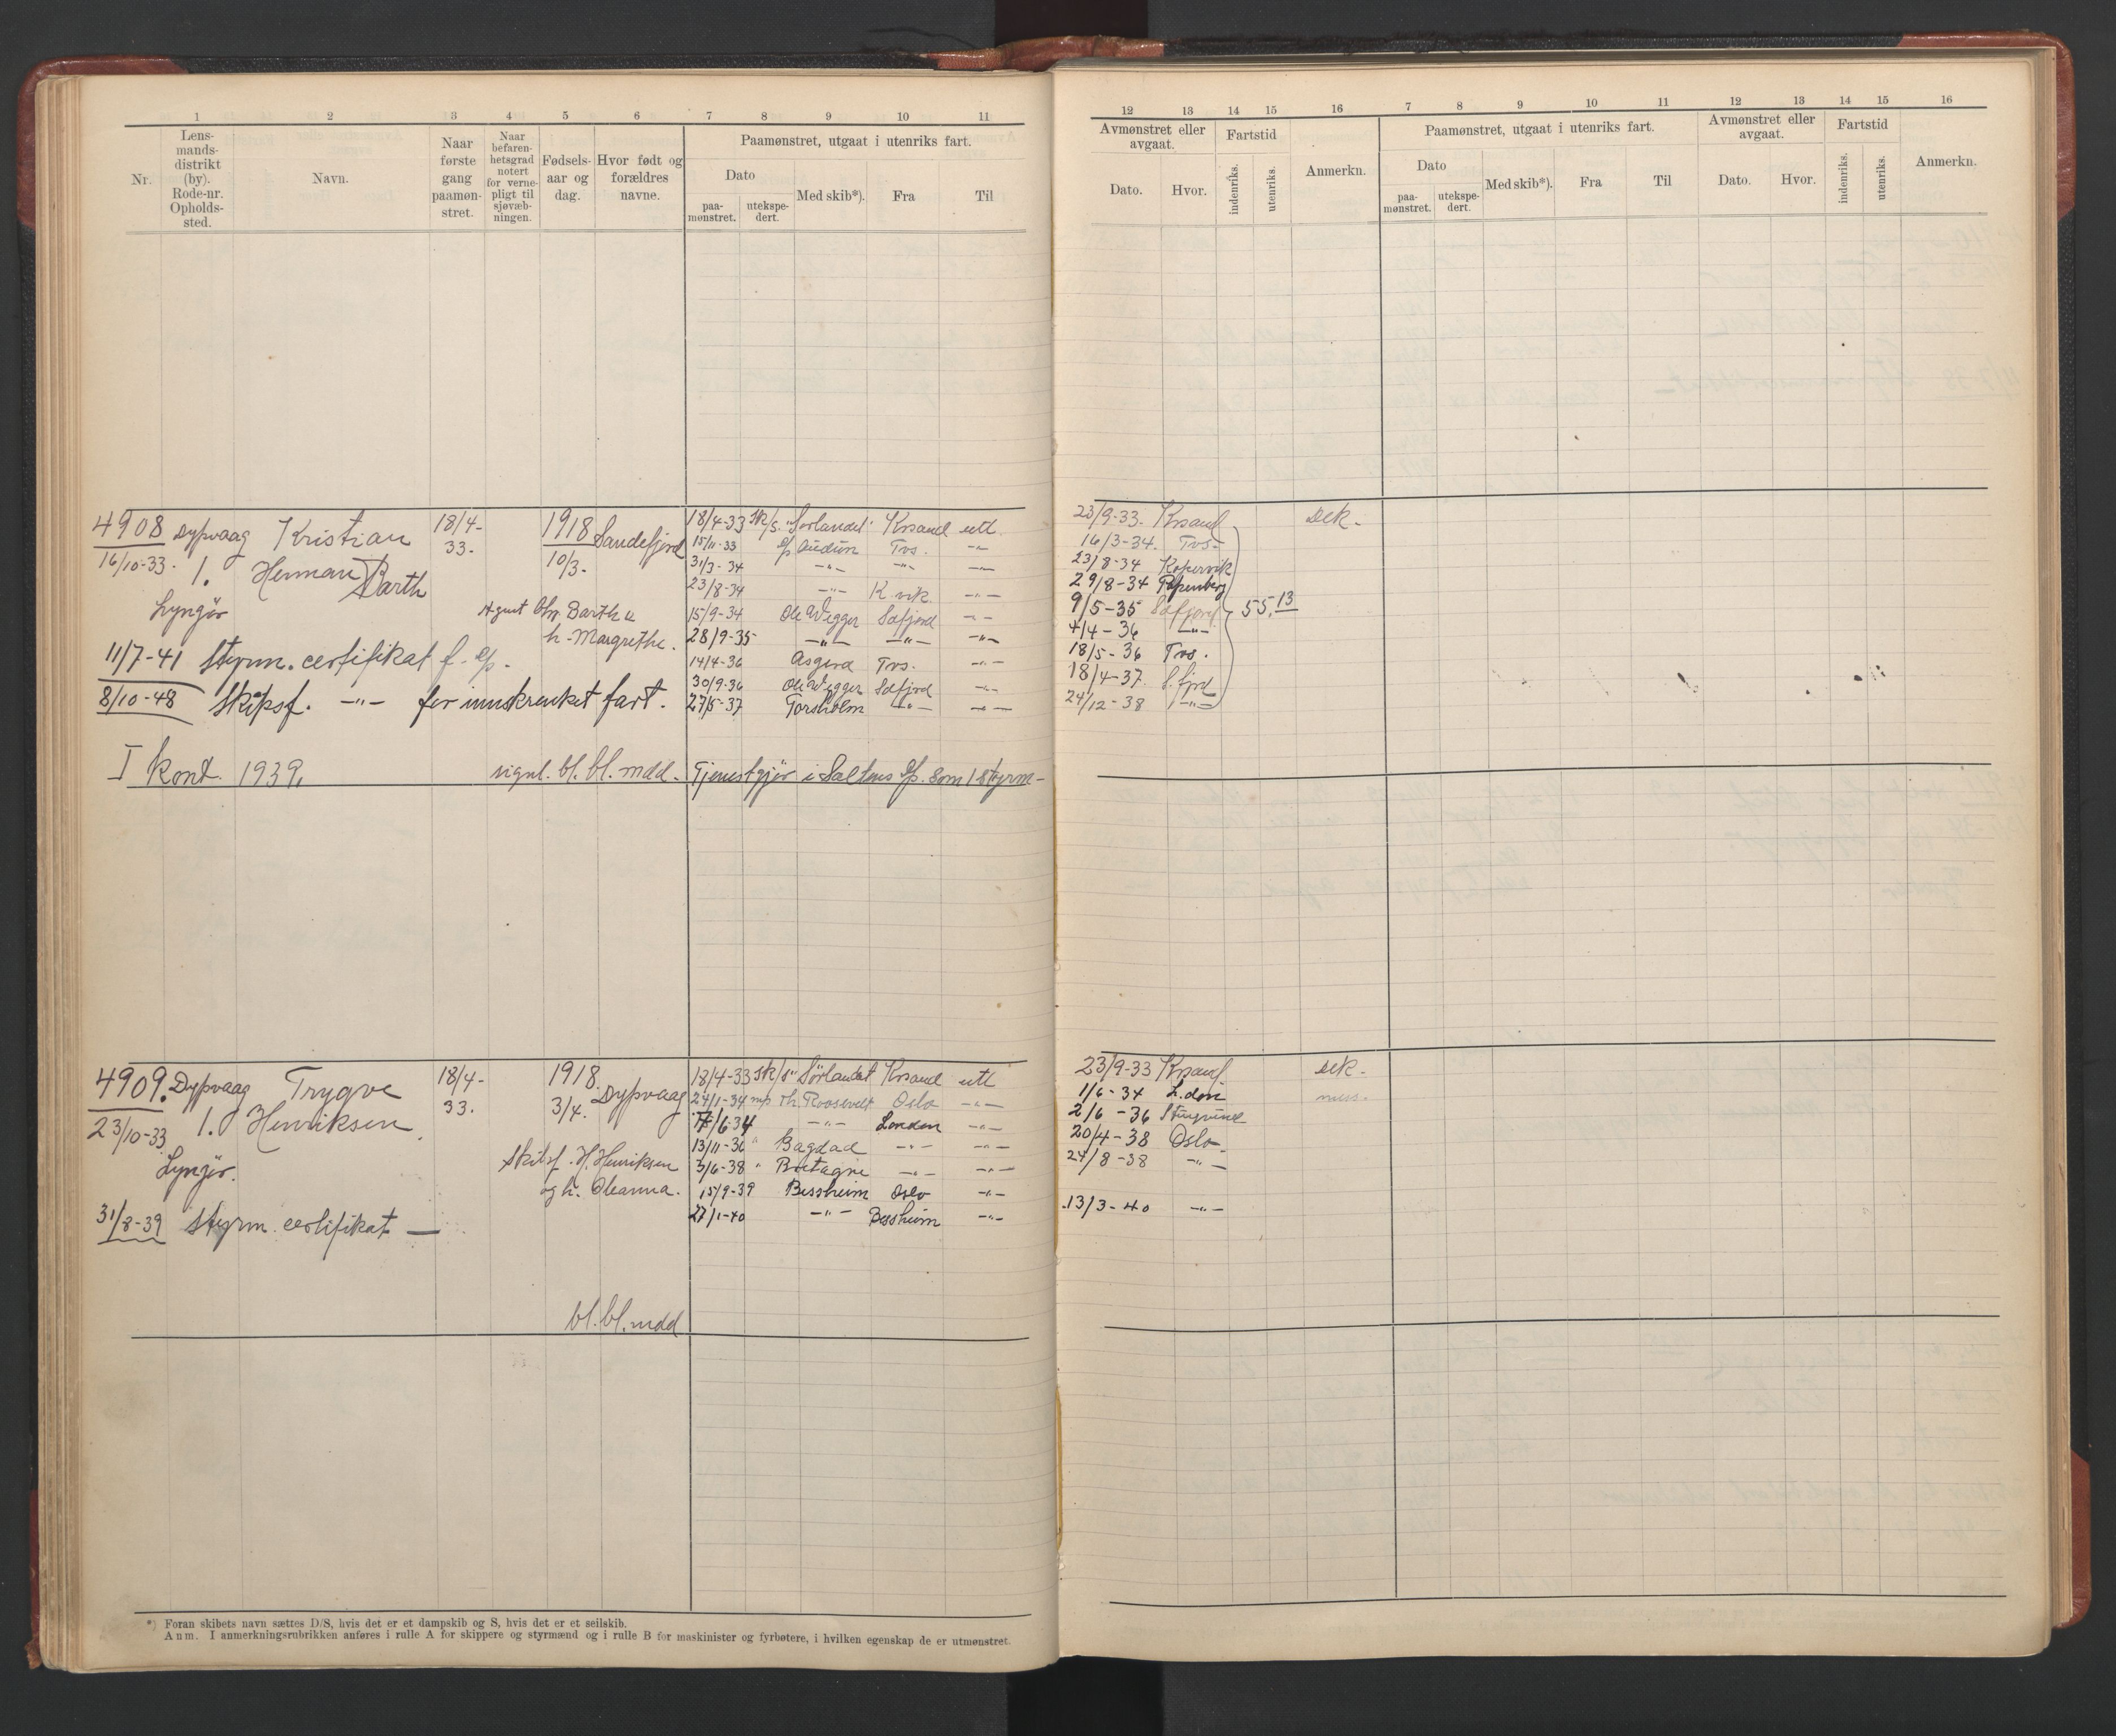 1 2 3 4 5 6 7 8 9 10 11
Nr.
Lens-
mands-
distrikt
(by).
Rode-nr.
Opholds-
sted.
Navn.
Naar
første
gang
paamøn-
stret.
Naar
befaren-
hetsgrad
notert
for verne-
pligt til
sjøvæb-
ningen.
Fødsels-
aar og
dag.
Hvor født og
forældres
navne.
Paamønstret, utgaat i utenriks fart.
Dato
paa-
mønstret.
utekspe-
dert.
Med skib*).
Fra
Til
4908 Dypvaag Kristian 18/4- 1918 Sandefjord 18/4-33 Sk/s. "Sørlandet" Krsand utl.
16/10-33. 1. Herman Barth 33. 10/3. 15/11-33 D/S Audun Tvs. -"-
31/3-34 -"- -"- -"-
23/8-34 -"- K.vik -"-
Lyngør Agent Chr. Barth u 15/9-34 Ole Wegger Sdfjord -"-
h. Margrethe. 28/9-35 -"- -"- -"-
11/7-41 Styrm. certifikat f. D/S. 14/4-36 Asgerd Tvs. -"-
30/9-36 Ole Wegger Sdfjord -"-
8/10-48 Skipsf. -"- for innskrenket fart. 27/5-37 Torsholm -"- -"-
I kont. 1939. signl. bl. bl. mdd. Tjenestgjør i Saltens D/S. som 1 styrm-
4909. Dypvaag Trygve 18/4- 1918. Dypvaag 18/4-33 Sk/s "Sørlandet Krsand utl
23/10-33 1. Henriksen 33. 3/4. 24/1-34 m/s Th. Roosevelt Oslo -"-
7/6-34 -"- London -"-
13/11-36 " Bagdad -"- -"-
Lyngør. Skibsf. H. Henriksen 3/6-38 " Bretagne -"- -"-
og h. Oleanna. 15/9-39 Bessheim Oslo -"-
31/8-39 Styrm. certifikat — 27/1-40 -"- Bessheim -"-
bl. bl. mdd
*) Foran skibets navn sættes D/S, hvis det er et dampskib og S, hvis det er et seilskib.
Anm. I anmerkningsrubrikken anføres i rulle A for skippere og styrmænd og i rulle B for maskinister og fyrbøtere, i hvilken egenskap de er utmønstret.
12 13 14 15 16 7 8 9 10 11 12 13 14 15 16
Avmønstret eller
avgaat.
Dato. Hvor.
Fartstid
indenriks.
utenriks.
Anmerkn.
Paamønstret, utgaat i utenriks fart.
Dato
paa-
mønstret.
utekspe-
dert.
Med skib*).
Fra
Til
Avmønstret eller
avgaat.
Dato. Hvor.
Fartstid
indenriks.
utenriks.
Anmerkn.
23/9-33. Krsand Dek-
16/3-34. Tvs-
23/8-34 Kopervik
29/8-34 Papenberg
9/5-35 Sdfjord 55, 13
4/4-36 -"-
18/5-36 Tvs.
18/4-37. S.fjrd
24/12-38 -"-
23/9-33 Krsand Dek-
1/6-34 L.don
2/6-36
20/4-38 Oslo
24/8-38 -"-
13/3-40 -"-